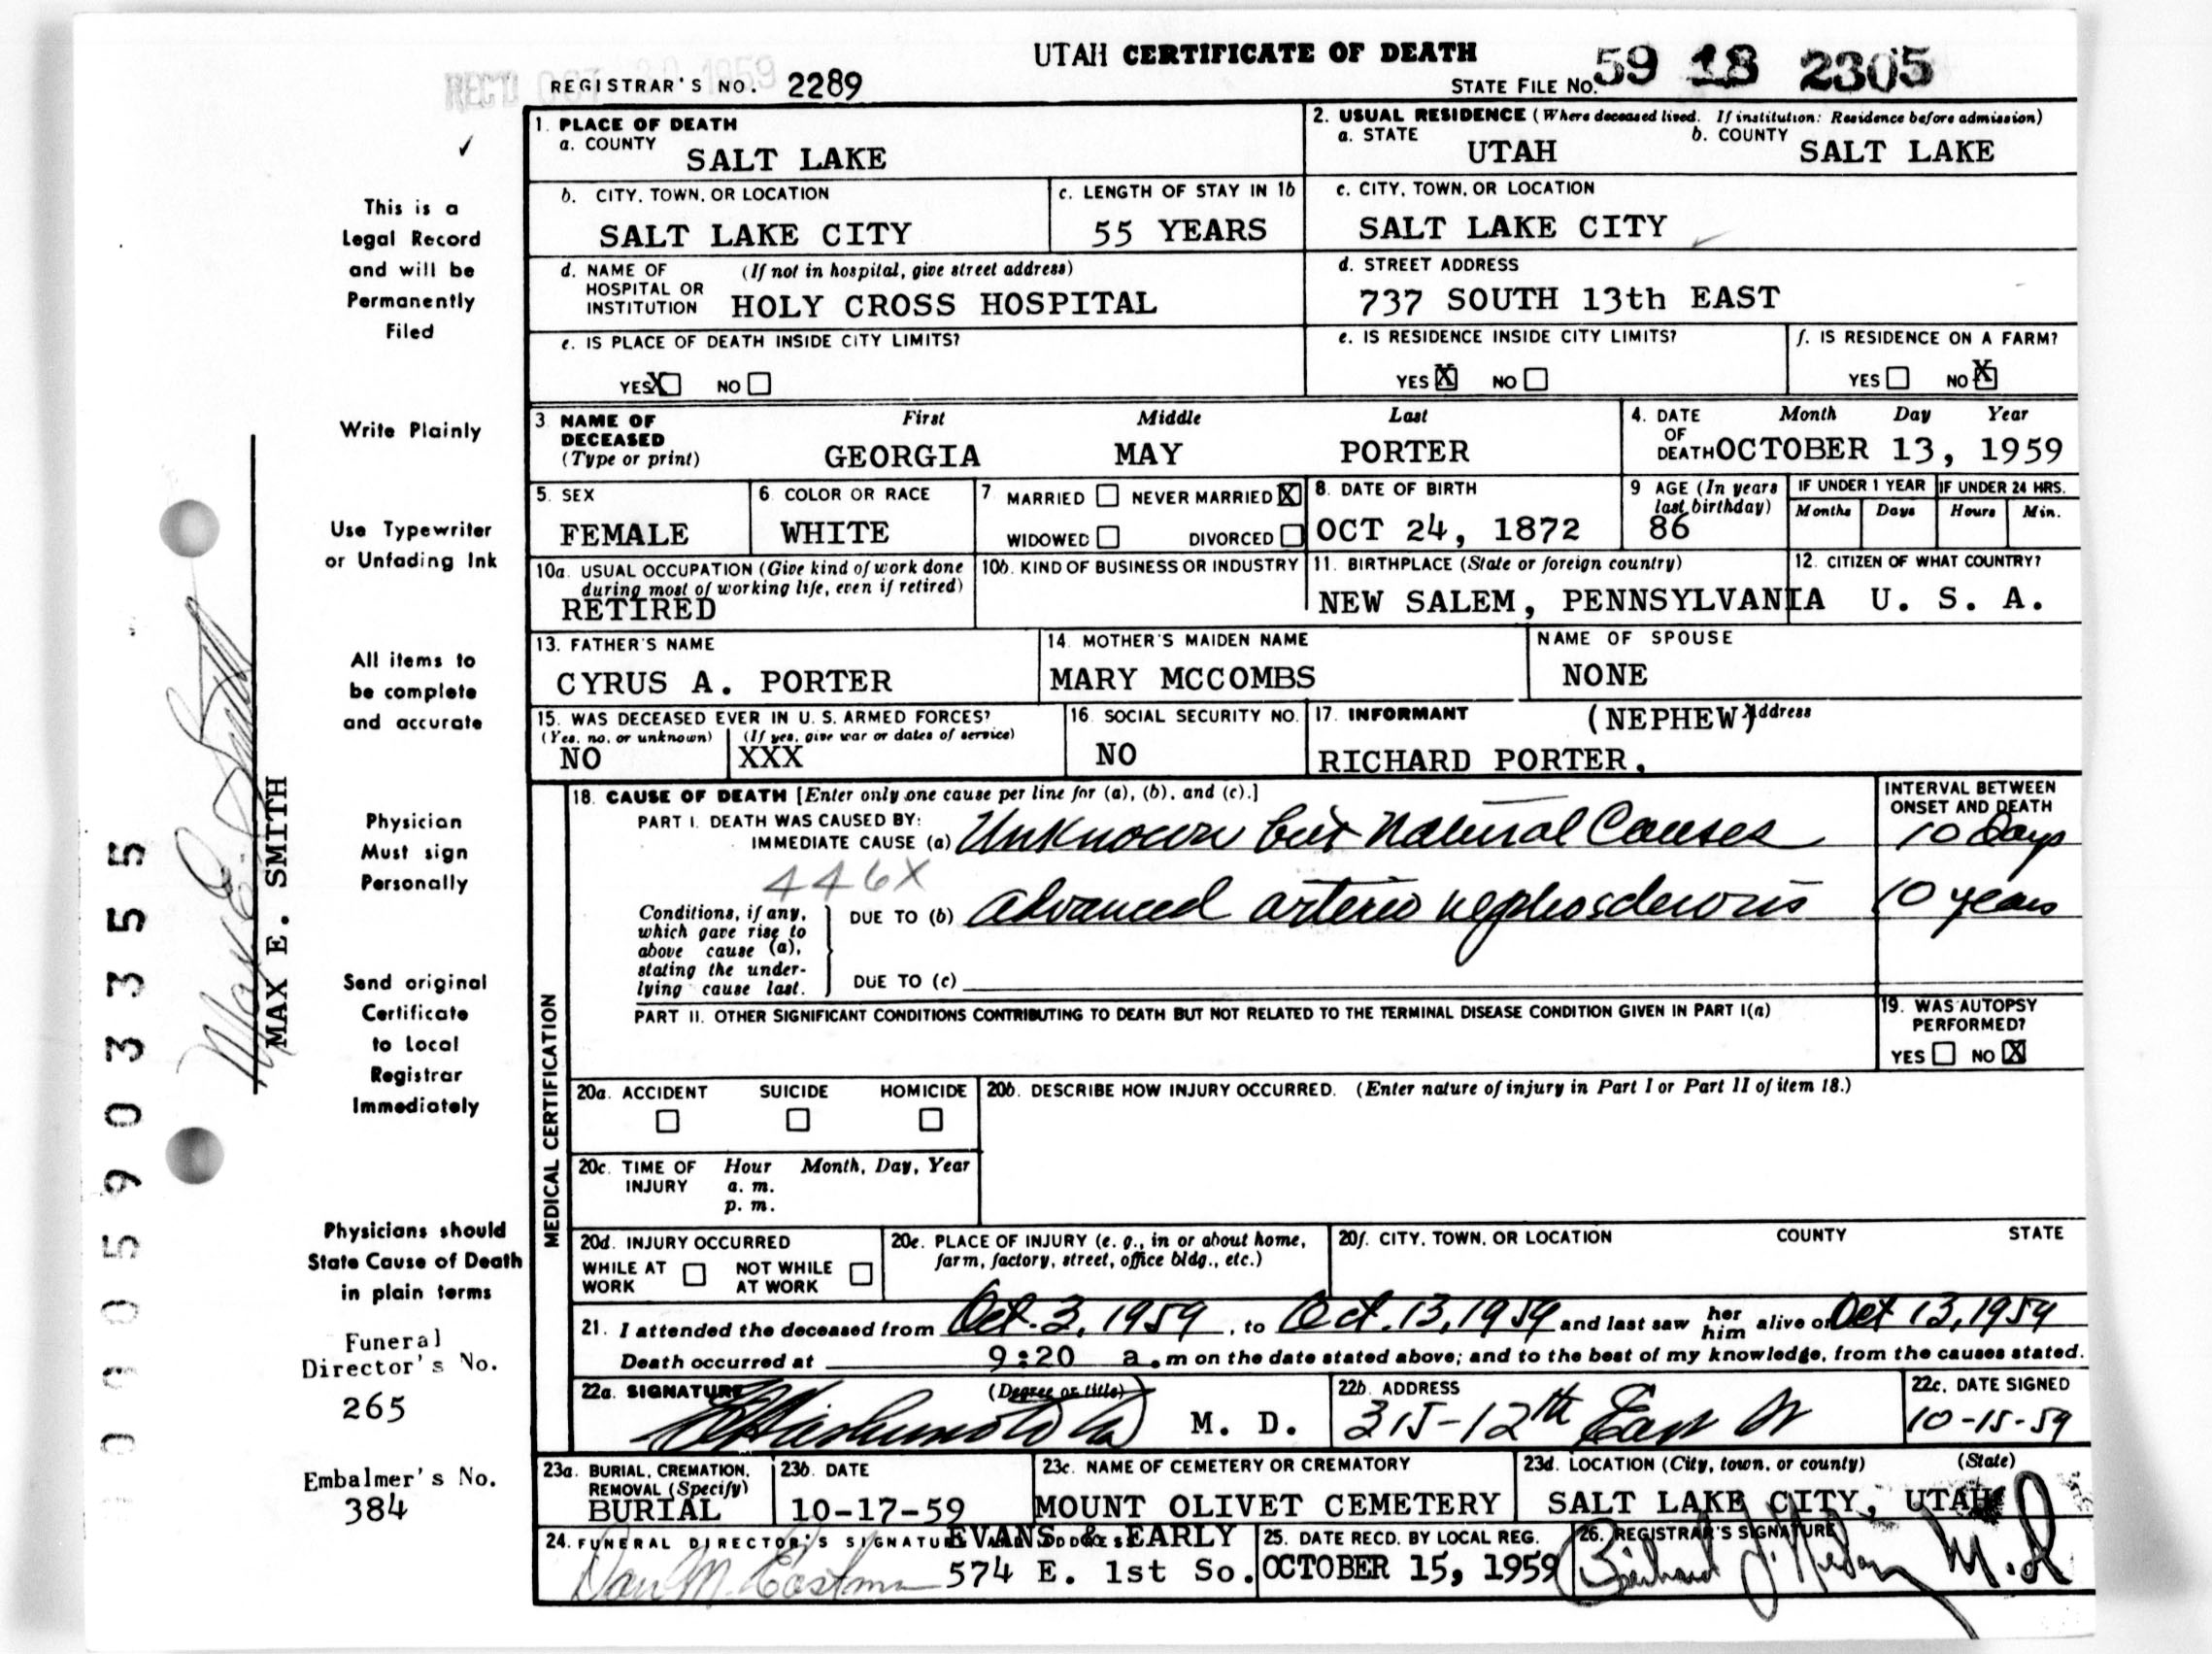 UTAH CERTIFICATE OF DEATH
REC'D OCT 20 1959
REGISTRAR'S NO. 2289
STATE FILE NO. 59 18 2305
1. PLACE OF DEATH
a. COUNTY
SALT LAKE
2. USUAL RESIDENCE (Where deceased lived. If institution: Residence before admission)
a. STATE UTAH b. COUNTY SALT LAKE
b. CITY, TOWN, OR LOCATION
SALT LAKE CITY
c. LENGTH OF STAY IN 1b
55 YEARS
c. CITY, TOWN, OR LOCATION
SALT LAKE CITY
d. NAME OF HOSPITAL OR INSTITUTION (If not in hospital, give street address)
HOLY CROSS HOSPITAL
d. STREET ADDRESS
737 SOUTH 13th EAST
e. IS PLACE OF DEATH INSIDE CITY LIMITS?
YES X NO
e. IS RESIDENCE INSIDE CITY LIMITS?
YES X NO
f. IS RESIDENCE ON A FARM?
YES NO X
3. NAME OF DECEASED (Type or print)
First Middle Last
GEORGIA MAY PORTER
4. DATE OF DEATH Month Day Year
OCTOBER 13, 1959
5. SEX
FEMALE
6. COLOR OR RACE
WHITE
7. MARRIED NEVER MARRIED X
WIDOWED DIVORCED
8. DATE OF BIRTH
OCT 24, 1872
9. AGE (In years last birthday)
86
IF UNDER 1 YEAR IF UNDER 24 HRS.
Months Days Hours Min.
10a. USUAL OCCUPATION (Give kind of work done during most of working life, even if retired)
RETIRED
10b. KIND OF BUSINESS OR INDUSTRY
11. BIRTHPLACE (State or foreign country)
NEW SALEM, PENNSYLVANIA
12. CITIZEN OF WHAT COUNTRY?
U. S. A.
13. FATHER'S NAME
CYRUS A. PORTER
14. MOTHER'S MAIDEN NAME
MARY MCCOMBS
NAME OF SPOUSE
NONE
15. WAS DECEASED EVER IN U. S. ARMED FORCES?
(Yes, no, or unknown) (If yes, give war or dates of service)
NO XXX
16. SOCIAL SECURITY NO.
NO
17. INFORMANT (NEPHEW) Address
RICHARD PORTER.
MEDICAL CERTIFICATION
18. CAUSE OF DEATH [Enter only one cause per line for (a), (b), and (c).]
INTERVAL BETWEEN ONSET AND DEATH
PART I. DEATH WAS CAUSED BY:
IMMEDIATE CAUSE (a) Unknown but Natural Causes 10 days
446X
Conditions, if any, which gave rise to above cause (a), stating the underlying cause last.
DUE TO (b) advanced arterio nephrosclerosis 10 years
DUE TO (c)
PART II. OTHER SIGNIFICANT CONDITIONS CONTRIBUTING TO DEATH BUT NOT RELATED TO THE TERMINAL DISEASE CONDITION GIVEN IN PART I(a)
19. WAS AUTOPSY PERFORMED?
YES NO X
20a. ACCIDENT SUICIDE HOMICIDE
20b. DESCRIBE HOW INJURY OCCURRED. (Enter nature of injury in Part I or Part II of item 18.)
20c. TIME OF INJURY Hour Month, Day, Year
a. m.
p. m.
20d. INJURY OCCURRED
WHILE AT WORK NOT WHILE AT WORK
20e. PLACE OF INJURY (e. g., in or about home, farm, factory, street, office bldg., etc.)
20f. CITY, TOWN, OR LOCATION COUNTY STATE
21. I attended the deceased from Oct. 3, 1959, to Oct. 13, 1959 and last saw her him alive on Oct 13, 1959
Death occurred at 9:20 a. m on the date stated above; and to the best of my knowledge, from the causes stated.
22a. SIGNATURE (Degree or title)
M. D.
22b. ADDRESS
315-12th East St
22c. DATE SIGNED
10-15-59
23a. BURIAL, CREMATION, REMOVAL (Specify)
BURIAL
23b. DATE
10-17-59
23c. NAME OF CEMETERY OR CREMATORY
MOUNT OLIVET CEMETERY
23d. LOCATION (City, town, or county) (State)
SALT LAKE CITY, UTAH
24. FUNERAL DIRECTOR'S SIGNATURE
EVANS & EARLY
574 E. 1st So.
25. DATE RECD. BY LOCAL REG.
OCTOBER 15, 1959
26. REGISTRAR'S SIGNATURE
M.D
This is a
Legal Record
and will be
Permanently
Filed
Write Plainly
Use Typewriter
or Unfading Ink
All items to
be complete
and accurate
Physician
Must sign
Personally
Send original
Certificate
to Local
Registrar
Immediately
Physicians should
State Cause of Death
in plain terms
Funeral
Director's No.
265
Embalmer's No.
384
Max E. Smith
MAX E. SMITH
0059033 55